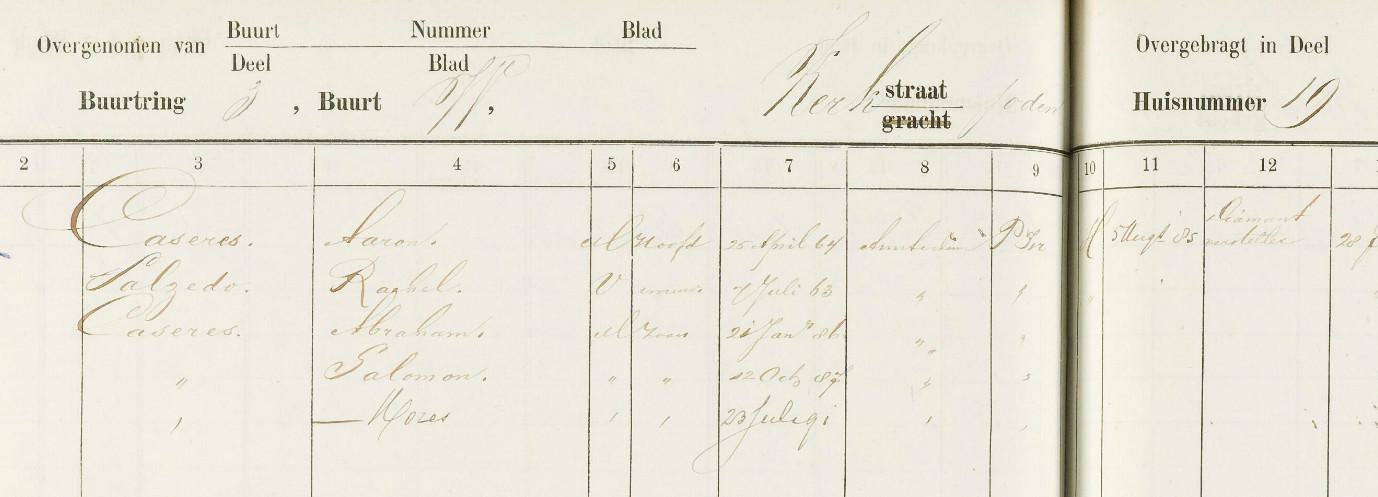 Overgenomen van Buurt Nummer Blad
Deel Blad
Overgebragt in Deel
Buurtring 3, Buurt , Kerk straat Joden
gracht
Huisnummer 19
2 3 4 5 6 7 8 9 10 11 12
Diamant
Caseres. Aaron. M Hoofd 25 April 64 Amsterdam P Isr H 5 Augt 85 28
Salzedo. Rachel. V 7 Juli 63 " " "
Caseres. Abraham. M Zoon 21 Jany 86 " "
" Salomon. " " 12 Oct 87 " "
" — Mozes " " 23 Juli 91 " "